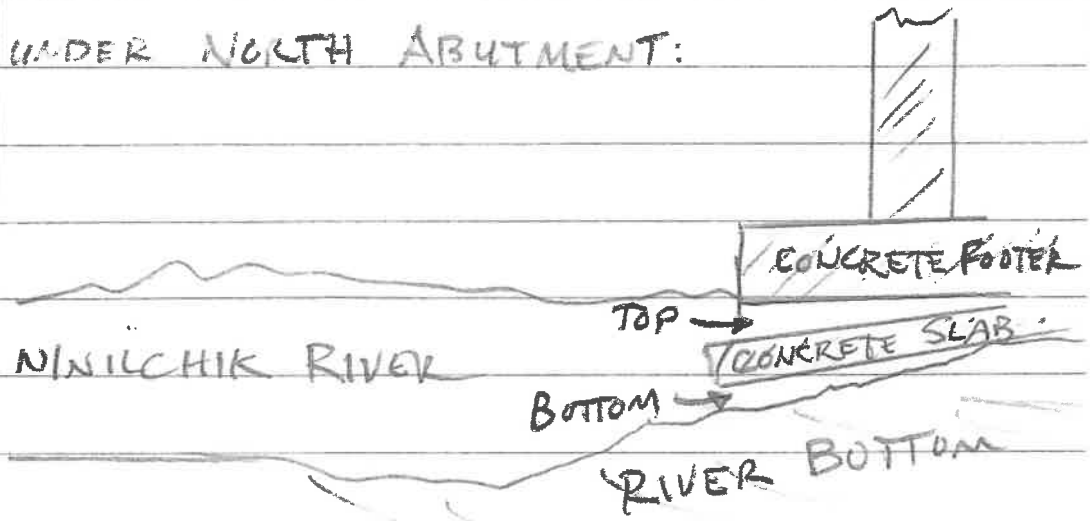 UNDER NORTH ABUTMENT:
CONCRETE FOOTER
TOP
CONCRETE SLAB
NINILCHIK RIVER
BOTTOM
RIVER BOTTOM